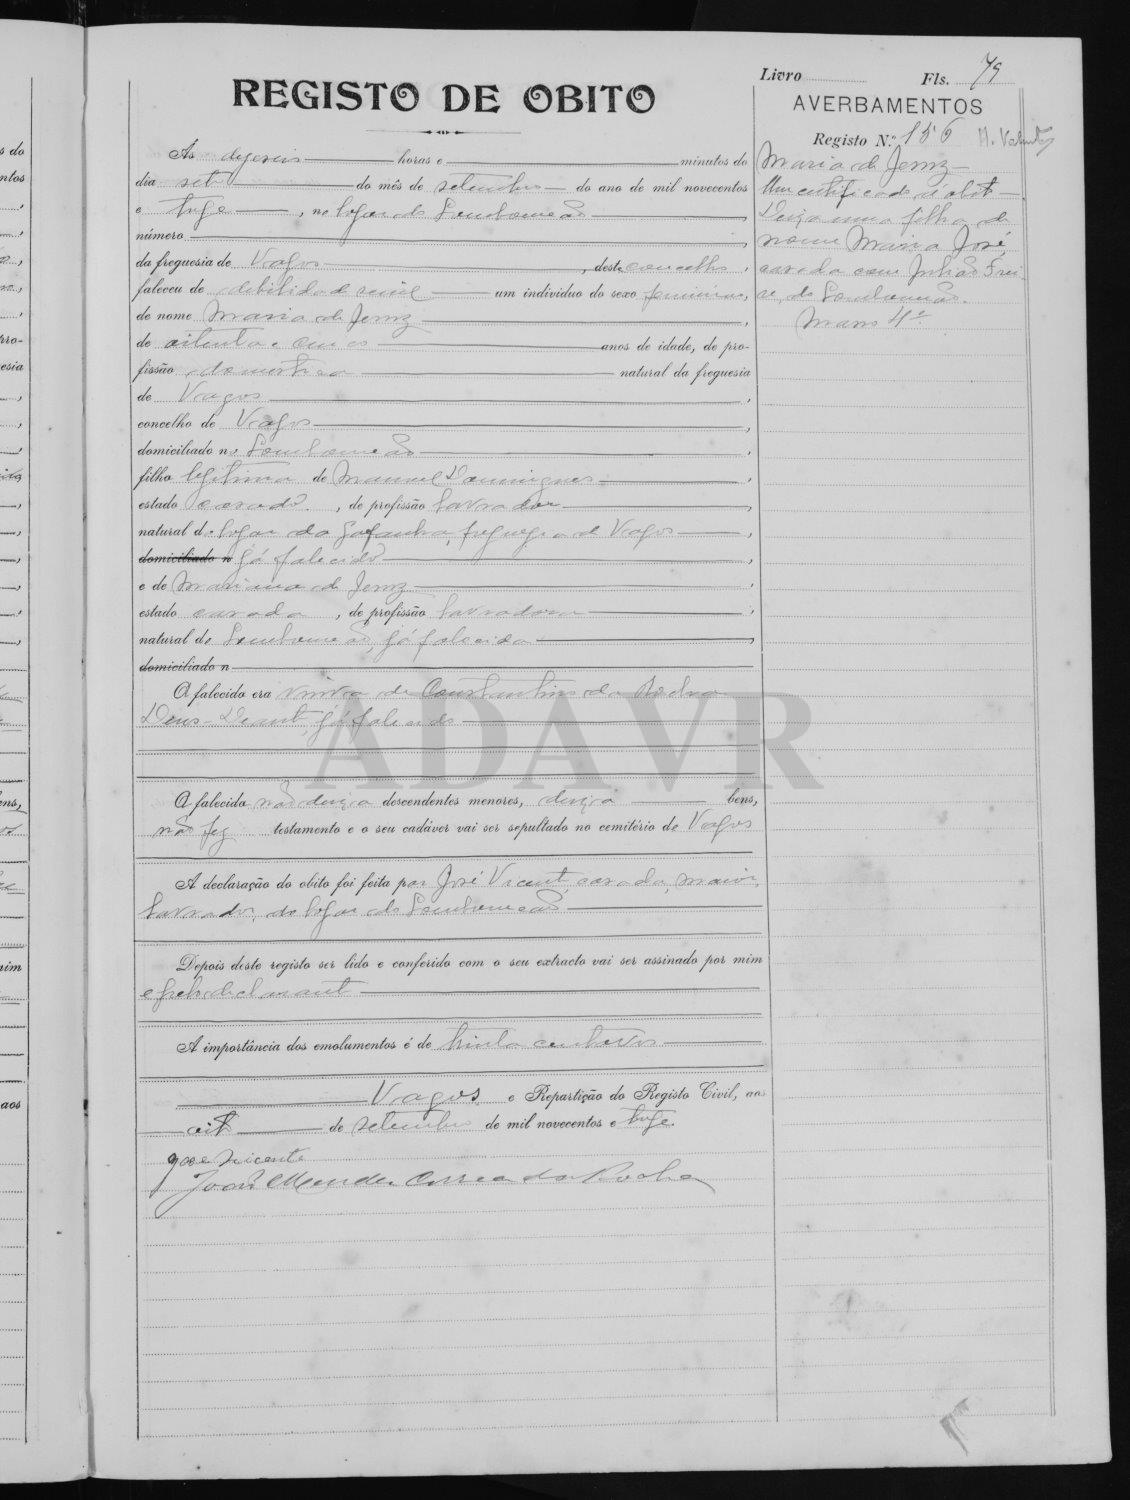 Livro Fls. 79
REGISTO DE OBITO
AVERBAMENTOS
Registo N.º 156
Ás dezeseis horas e minutos do
dia sete do mês de setembro do ano de mil novecentos
e treze, no logar de Lombomeão
número
da freguesia de Vagos, deste concelho,
faleceu de debilidade senil um individuo do sexo feminino,
de nome Maria de Jesus,
de oitenta e cinco anos de idade, de pro-
fissão domestica natural da freguesia
de Vagos,
concelho de Vagos,
domiciliado no Lombomeão,
filho legitima de Manuel Domingues,
estado casado, de profissão lavrador,
natural do logar da Gafanha, freguezia de Vagos,
domiciliado n já falecido,
e de Mariana de Jesus,
estado casada, de profissão lavradora,
natural de Lombomeão, já falecida,
domiciliado n
A falecida era viuva de Constantino da Rocha
Deus-Deante, já falecido
A falecida não deixa descendentes menores, deixa bens,
não fez testamento e o seu cadáver vai ser sepultado no cemitério de Vagos
A declaração do obito foi feita por José Vicente, casado, maior,
lavrador, do logar de Lombomeão
Depois deste registo ser lido e conferido com o seu extracto vai ser assinado por mim
e pelo declarante
A importância dos emolumentos é de trinta centavos
Vagos e Repartição do Registo Civil, aos
oito de setembro de mil novecentos e treze.
José Vicente
João Mendes Correa da Rocha
Maria de Jesus
Um certificado d'obito
Deixa uma filha de
nome Maria José,
casada com Julião Frei-
re, de Lombomeão.
ADAVR